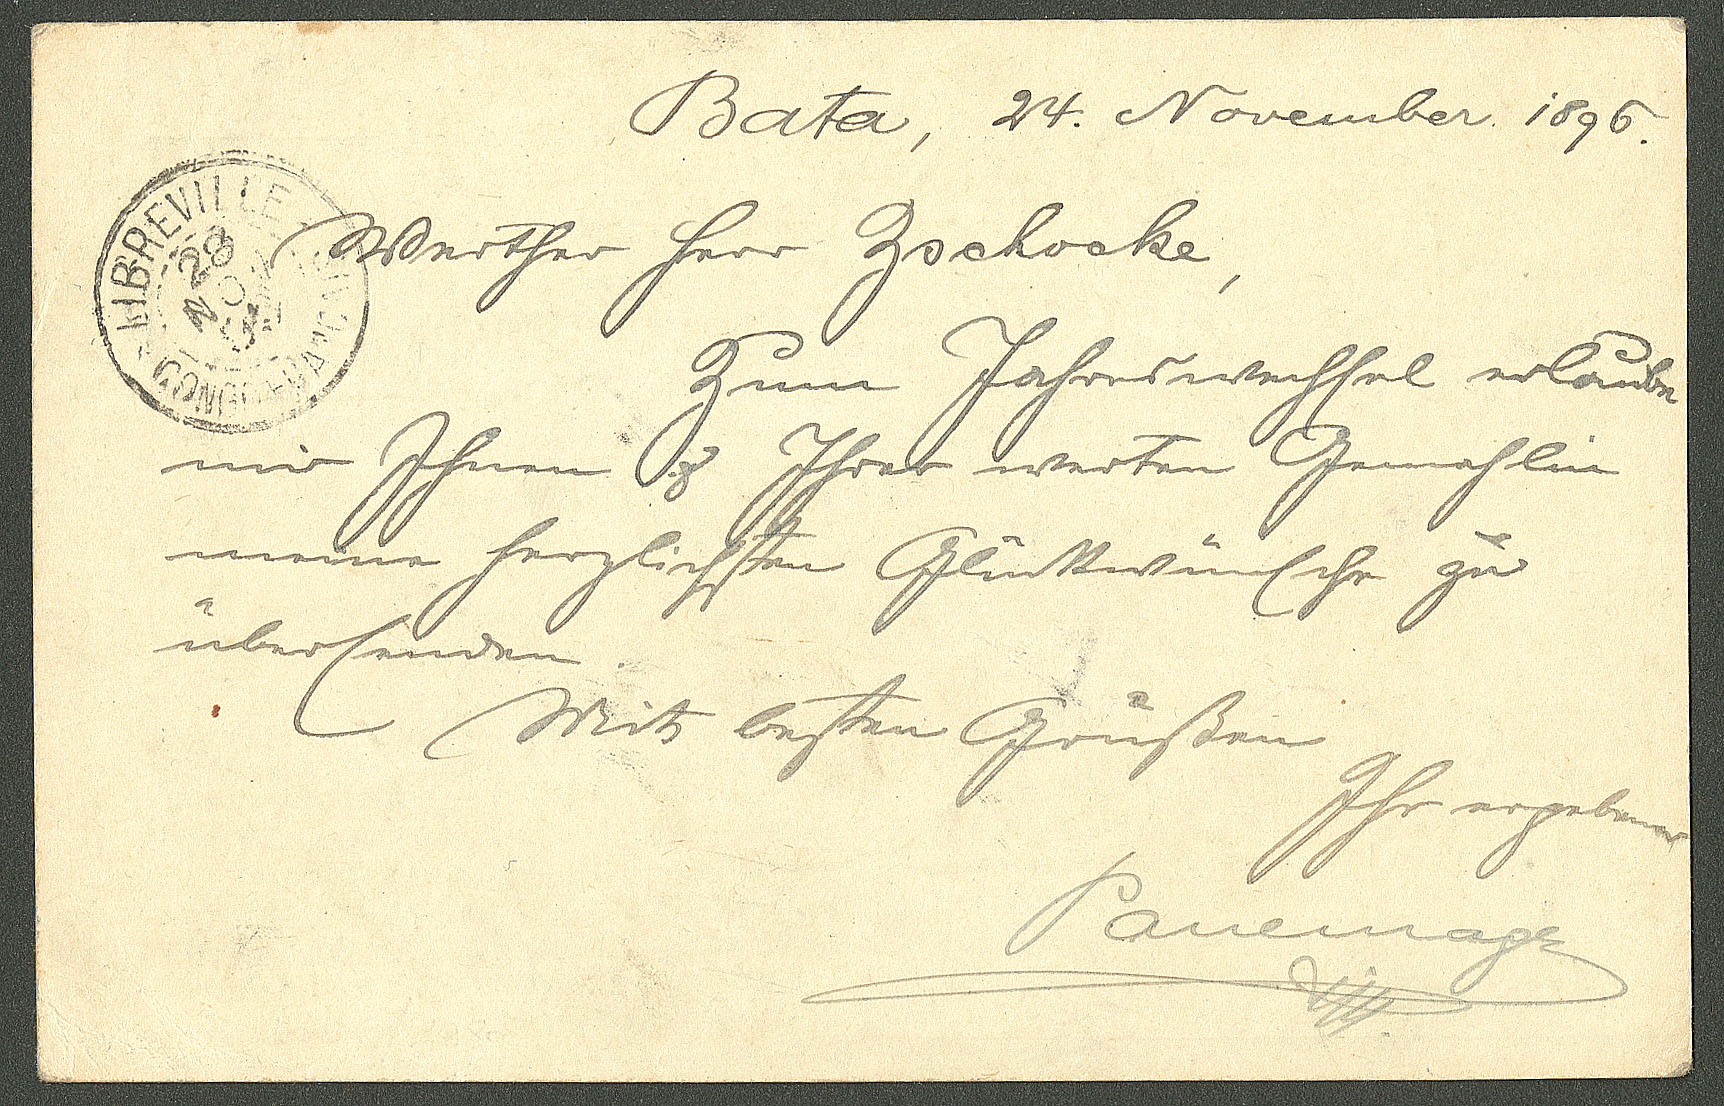 Bata, 24. November 1896.
LIBREVILLE
28
NOV
CONGO FRANCAIS
Werther Herr Zschocke,
Zum Jahreswechsel erlaube
mir Ihnen & Ihrer werten Gemahlin
meine herzlichsten Glückwünsche zu
übersenden.
Mit besten Grüßen
Ihr ergebener